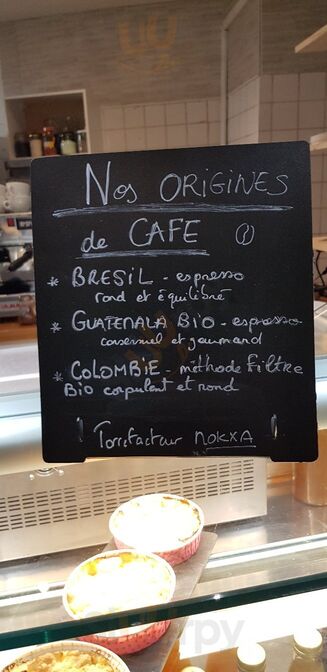 Nos ORIGINES
de CAFE
* BRESIL - espresso
rond et équilibré
* GUATEMALA BIO - espresso
consensuel et gourmand
* COLOMBIE - méthode filtre
Bio corpulent et rond
Torréfacteur NOKXA